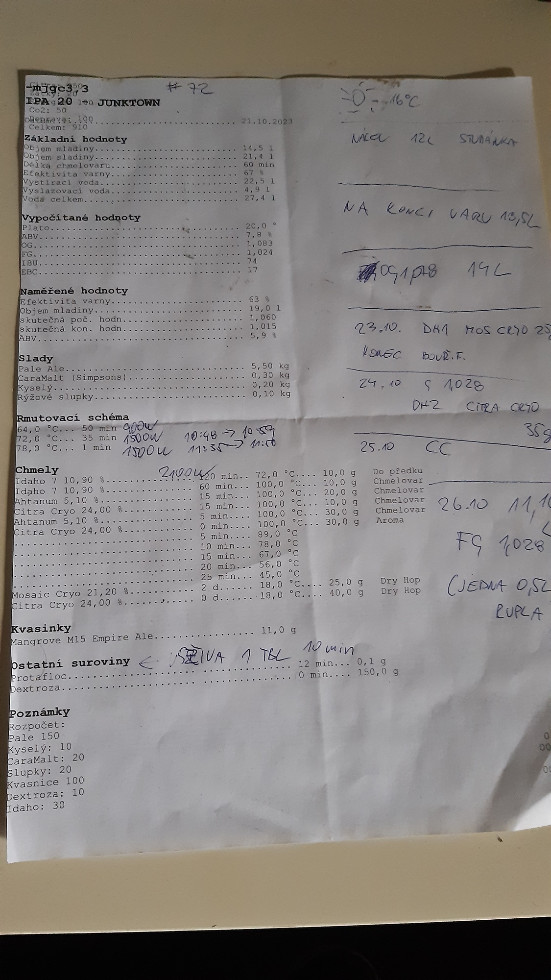 # 72
IPA 20 JUNKTOWN
21.10.2023
Základní hodnoty
Objem mladiny 14,5 l
Objem sladiny 21,4 l
Délka chmelovaru 60 min
Efektivita varny 67 %
Vystírací voda 22,5 l
Vyslazovací voda 4,9 l
Voda celkem 27,4 l
Vypočítané hodnoty
Plato 20,0 °
ABV 7,8 %
OG 1,083
FG 1,024
IBU 74
EBC 17
Naměřené hodnoty
Efektivita varny 63 %
Objem mladiny 19,0 l
Skutečná poč. hodn. 1,060
Skutečná kon. hodn. 1,015
ABV 5,9 %
Slady
Pale Ale 5,50 kg
CaraMalt (Simpsons) 0,30 kg
Kyselý 0,20 kg
Rýžové slupky 0,10 kg
Rmutovací schéma
64,0 °C... 50 min 900W
72,0 °C... 35 min 1500W 10:48 → 10:59
78,0 °C... 1 min 1500W
Chmely 2100W
Idaho 7 10,90 % 120 min.. 72,0 °C.... 10,0 g Do předku
Idaho 7 10,90 % 60 min... 100,0 °C... 10,0 g Chmelovar
Ahtanum 5,10 % 15 min... 100,0 °C... 20,0 g Chmelovar
Citra Cryo 24,00 % 15 min... 100,0 °C... 30,0 g Chmelovar
Ahtanum 5,10 % 5 min... 100,0 °C... 10,0 g Chmelovar
Citra Cryo 24,00 % 0 min... 100,0 °C... 30,0 g Aroma
5 min... 89,0 °C
10 min... 78,0 °C
15 min... 67,0 °C
20 min... 56,0 °C
25 min... 45,0 °C
Mosaic Cryo 21,20 % 2 d... 18,0 °C... 25,0 g Dry Hop
Citra Cryo 24,00 % 0 d... 18,0 °C... 40,0 g Dry Hop
Kvasinky
Mangrove M15 Empire Ale 11,0 g
Ostatní suroviny
ŽIVA 1 TBL 10 min
Protafloc 12 min... 0,1 g
Dextroza 0 min.... 150,0 g
Poznámky
Rozpočet:
Pale 150
Kyselý: 10
CaraMalt: 20
Slupky: 20
Kvasnice 100
Dextroza: 10
Idaho: 30
16°C
12L STUDÁNKA
NA KONCI VARU 19,5L
14L
23.10. DH1 MOS CRYO 25
KONEC BOUŘ. F.
24.10 1028
DH2 CITRA CRYO
35g
25.10 CC
26.10
FG 1,028
(JEDNA 0,5L
RUPLA